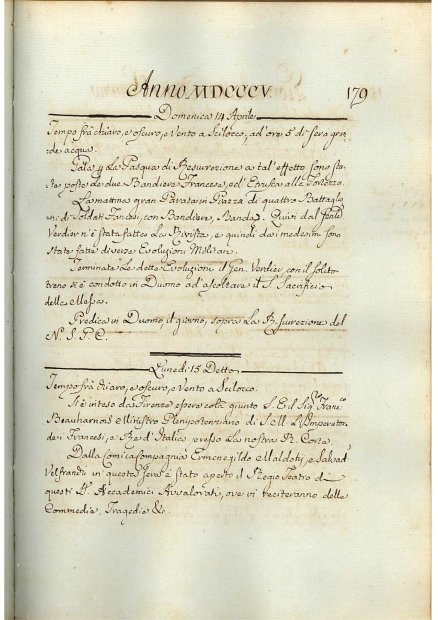 Anno MDCCCV.
179
Domenica 14 Aprile
Tempo frà chiaro, e oscuro, e Vento a Scilocco, ad'ore 5 di sera gran-
de acqua.
Gala p. La Pasqua di Resurezione a tal'effetto sono sta-
te poste le due Bandiere Francese, ed Etrusca alle Fortezze.
La mattina gran Parata in Piazza di quattro Battaglio
ni di Soldati Francesi, con Bandiere, e Banda. Quivi dal Gen.le
Verdier n'è stata fatta La Rivista, e quindi da medesimi sono
state fatte diverse Evoluzioni Militari.
Terminate Le dette Evoluzioni il Gen. Verdier, con il solito
treno si è condotto in Duomo ad'ascoltare il S. Sacrificio
della Messa.
Predica in Duomo, il giorno, sopra La Resurezione del
N. S. G. C.
Lunedi 15 Detto
Tempo frà chiaro, e oscuro, e Vento a Scilocco.
Si è inteso da Firenze essere colà giunto S. E. il Sig.re Franc.
Beauharnas Ministro Plenipotenziario di S. M. L'Imperatore
de Francesi, e Re d'Italia presso La nostra R. Corte.
Dalla Comica Compagnia Ermenegildo Maldoti, e Salvad.
in questa Sera è stato aperto il Regio Teatro di
questi SS. Accademici Avvalorati, ove vi reciteranno delle
Commedie, Tragedie &c.